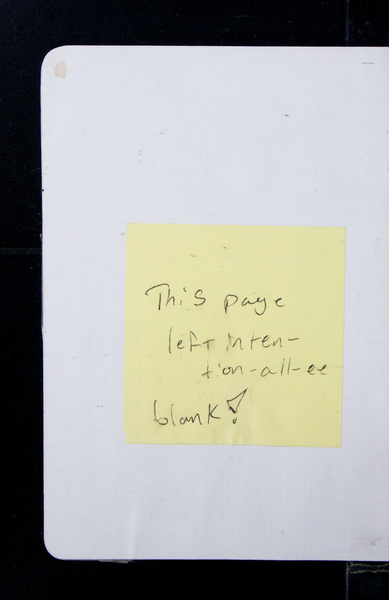 This page
left inten-
tion-all-ee
blank!